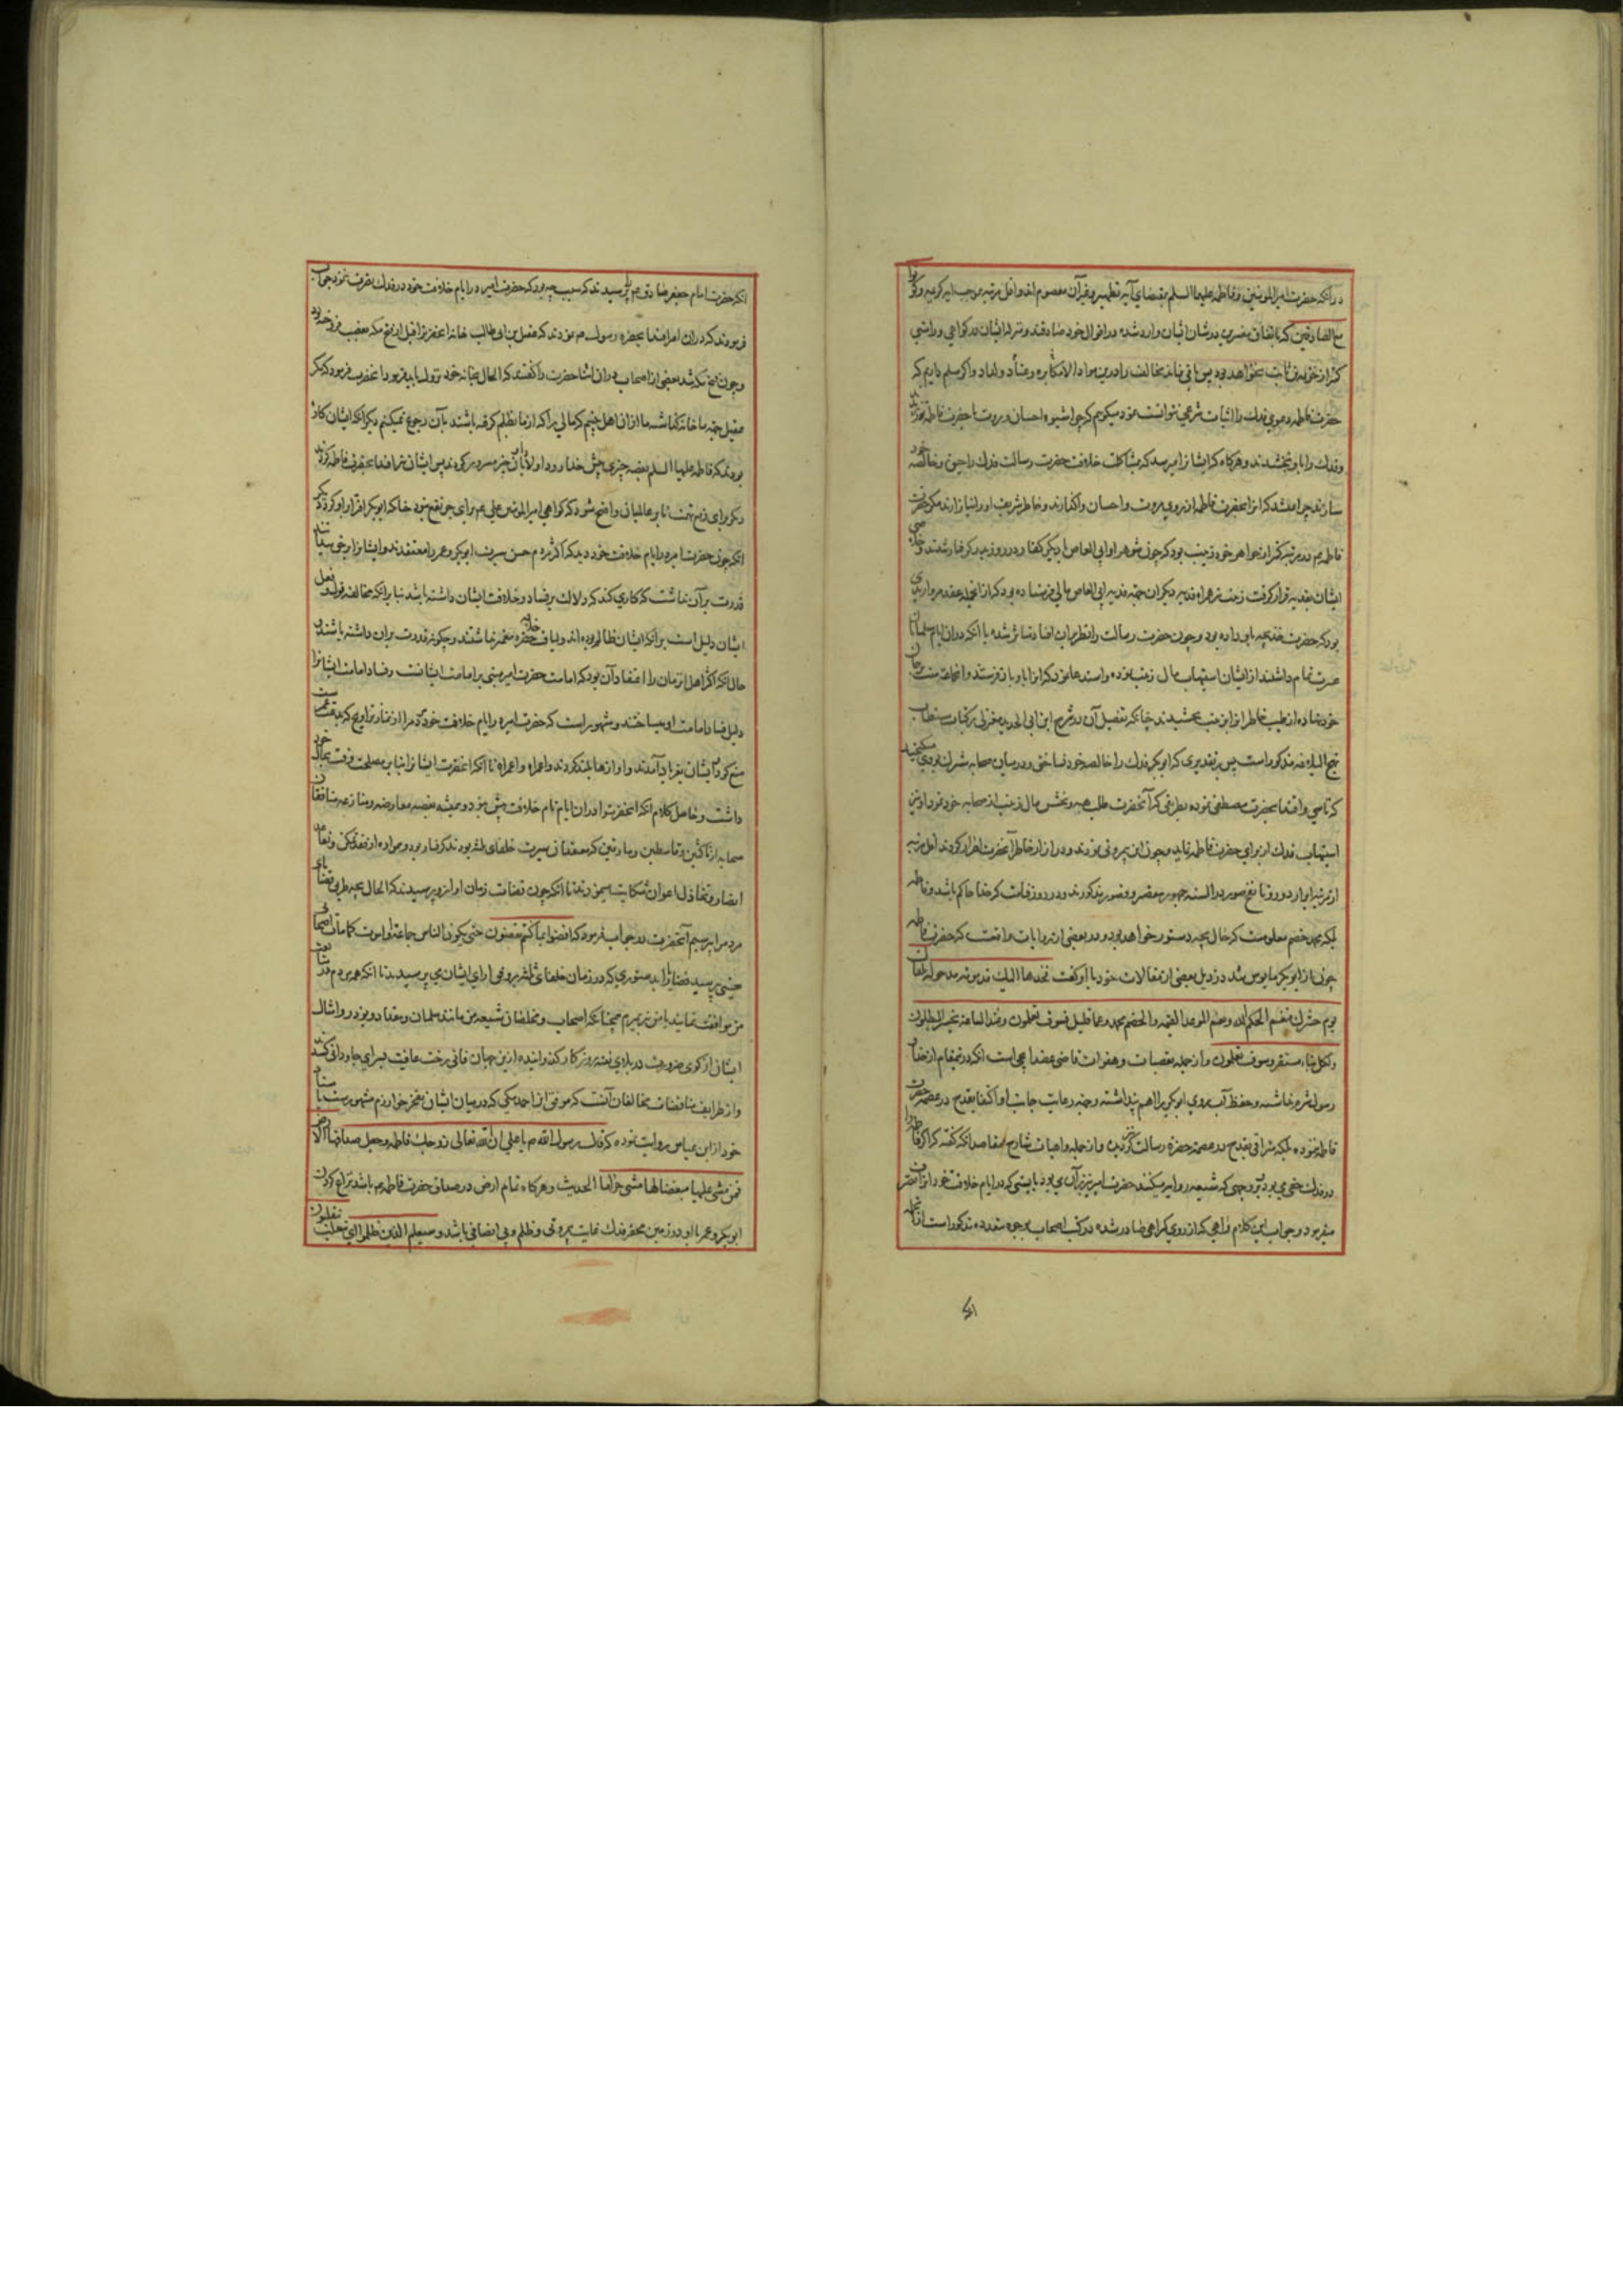 در آنکه حضرت امیر المؤمنین و فاطمه علیهما السلم بمقتضای آیه تطهیر و غیر آن معصوم اند و اقل مرتبه بموجب آیه کریمه و کونوا
مع الصادقین که باتفاق مفسرین در شان ایشان وارد شده در اقوال خود صادقند و مر ایشان در کواهی و راستی
کمتر از خزیمه بن ثابت نخواهد بود پس باقی نماند مخالف را درین مواد الا مکابره و عناد و لداد و اکر مسلم داریم که
حضرت فاطمه دعوی فدک را اثبات شرعی نتوانست نمود میکویم که چرا شیوه احسان و مروت با حضرت فاطمه
و فدک را باو نبخشیدند و هرکاه که ایشانرا میرسد که بمشاکلت خلافت حضرت رسالت فدک را حق و خالصه خود
سازند چرا نمیشد که انرا بحضرت فاطمه از روی مروت و احسان واکذارند و خاطر شریف او را نیازارند مکر حضرت
فاطمه در مرتبه کمتر از خواهر خود زینب بود که چون شوهر او ابی العاص با دیکر کفار در روز بدر کرفتار شدند و خلاص
ایشان بفدیه قرار کرفت زینب همراه فدیه دیکران جهة فدیه ابی العاص مالی فرستاده بود که از آنجمله عقد مرواریدی
بود که حضرت خدیجه باو داده بود و چون حضرت رسالت را نظر بران افتاد متاثر شده با آنکه دران ایام مسلمانان
عسرت تمام داشتند از ایشان استیهاب مال زینب نموده و استدعا نمود که انرا باو باز فرستند و انجماعت منت بر جان
خود نهاده از طیب خاطر انرا بزینب بخشیدند چنانکه تفصیل آن در شرح ابن ابی الحدید معتزلی بر کتاب مستطاب
نهج البلاغه مذکور است پس بر تقدیری که ابوبکر فدک را خالصه خود نساختی و در میان صحابه مشترک بودی میکنجید
که تاسی و اقتدا بحضرت مصطفی نموده بطریقی که آنحضرت طلب هبه و بخشش مال زینب از صحابه خود نمود او نیز
استیهاب فدک از برای حضرت فاطمه نماید و چون این بیمروتی نمودند و در ازار خاطر آنحضرت اصرار کردند اقل مرتبه
از مرتبه ابرار دور و تا نفخ صور در السنه جمهور مقصر و قصور مذکورند و در روز قیامت که خدا حاکم باشد و فاطمه
بلکه محمد خصم معلومست که حال بچه دستور خواهد بود و در بعضی از روایات واقعست که حضرت فاطمه
چون از ابوبکر مایوس شد در ذیل بعضی از مقالات خود با او کفت فخذها الیک مذمومه مرحوله تلقاک
یوم حشرک فنعم الحکم الله و نعم الموعد القیمه و الخصم محمد و عما قلیل فسوف تعلمون و عند الساعة یخسر المبطلون
ولکل نباء مستقر و سوف تعلمون و از جمله تعصبات و هفوات قاضی عضد ایجی است انکه درینمقام از خدا و
رسول شرم نداشته و حفظ آب روی ابوبکر را اهم پنداشته و جهة رعایت جانب او اکتفا بقدح در عصمت حضرت
فاطمه نموده بلکه ترقی بقدح در عصمت حضرت رسالت کرده و از جمله واهیات شارح مقاصد انکه کفته که اکر فاطمه را
در فدک حقی می بود بر وجهی که شیعه روایت میکنند حضرت امیر نیز بر آن می بود بایستی که در ایام خلافت خود انرا تصرف
میفرمود و جواب این کلام واهی که از روی کمراهی صادر شده در کتب اصحاب بوجوه متعدده مذکور است از انجمله
انکه حضرت امام جعفر صادق را پرسیدند که سبب چه بود که حضرت امیر در ایام خلافت خود در فدک تصرف ننمود جواب
فرمودند که دران امر اقتدا بحضرت رسول نمودند که عقیل بن ابی طالب خانه انحضرترا قبل از فتح مکه بغصب فروخته بود
و چون فتح مکه شد بعضی از اصحاب دران اثنا حضرت را کفتند که الحال بخانه خود نزول باید فرمود انحضرت فرمود که مکر
عقیل جهة ما خانه کذاشته ما از ان اهل بیتیم که مالی را که از ما بظلم کرفته باشند بآن رجوع نمیکنیم دیکر انکه ایشان
بودند که فاطمه علیها السلم بغصه چیزی پیش خدا رود اولاد آن چیز مسرور کردند پس ایشان نیز اقتدا بحضرت فاطمه کردند
دیکر برای رفع تهمت تا بر عالمیان واضح شود که کواهی امیر المؤمنین علی برای جر نفع نبود چنانکه ابوبکر افترا باو کرد دیکر
انکه چون حضرت امیر در ایام خلافت خود دید که اکثر مردم حسن سیرت ابوبکر و عمر را معتقدند و ایشانرا بر حق میدانند
قدرت بر آن نداشت که کاری کند که دلالت بر فساد خلافت ایشان داشته باشد بنا بر انکه مخالفت قول و فعل
ایشان دلیل است بر انکه ایشان ظالم بوده اند و لیاقت خلافت حضرت پیغمبر نداشتند و چکونه قدرت بران داشته باشد
حال انکه اکثر اهل ان زمان را اعتقاد آن بود که امامت حضرت امیر مبنی بر امامت ایشانست و فساد امامت ایشانرا
دلیل فساد امامت او میساختند و مشهور است که حضرت امیر در ایام خلافت خود مردم را از نماز تراویح که بدعت عمر است
منع کرد ایشان بفریاد آمدند و اوازها بلند کردند واعمراه واعمراه تا انکه انحضرت ایشانرا بنا بر مصلحت وقت بحال خود
داشت و حاصل کلام انکه انحضرترا دران ایام نام خلافت بیش نبود و همیشه بغصه معارضه و منازعه منافقان
صحابه از ناکثین و قاسطین و مارقین که معتقدان سیرت خلفای ثلثه بودند کرفتار بود و همواره از تقاعد
انصار و تخاذل اعوان شکایت مینمودند تا انکه چون قضات زمان او ازو پرسیدند که الحال بچه طریق قضایای
مردم را بپرسیم آنحضرت در جواب فرمود که اقضوا بما کنتم تقضون حتی یکون الناس جماعة او اموت کما مات اصحابی
یعنی بپرسید قضایا را بدستوری که در زمان خلفای ثلثه بر وفق ارای ایشان می پرسیدند تا انکه همه مردم
من موافقت نمایند یا من نیز بمیرم همچنانکه اصحاب و مخلصان شیعه من مانند سلمان و مقداد و بوذر و امثال
ایشان از کوی ضرورت در بلای فتنه روزکار و کذرانیده ازین جهان فانی رخت عافیت بسرای جاودانی کشیدند
و از طرایف مناقضات مخالفان آنست که موفق بن احمد مکی که در میان ایشان بفخر خوارزم مشهور است باسناد
خود از ابن عباس روایت نموده که قال رسول الله یا علی ان الله تعالی زوجک فاطمه و جعل صداقها الارض
فمن مشی علیها مبغضا لها مشی حراما الحدیث و هرکاه تمام ارض در صداق حضرت فاطمه باشد نزاع کردن
ابوبکر و عمر با او در زمین محقر فدک غایت بیمروتی و ظلم و بی انصافی باشد و سیعلم الذین ظلموا ای منقلب ینقلبون